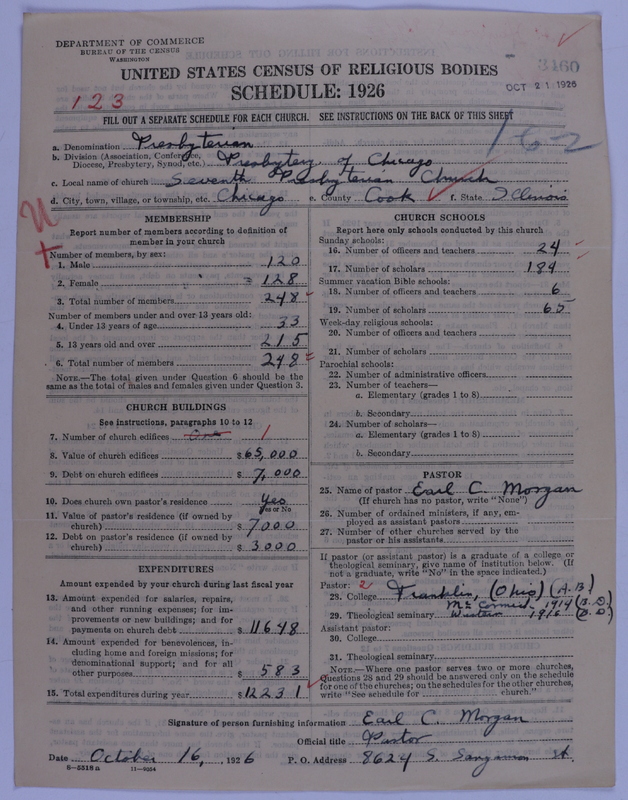 DEPARTMENT OF COMMERCE
BUREAU OF THE CENSUS
WASHINGTON
UNITED STATES CENSUS OF RELIGIOUS BODIES
SCHEDULE: 1926
3460
OCT 21 1926
123
FILL OUT A SEPARATE SCHEDULE FOR EACH CHURCH. SEE INSTRUCTIONS ON THE BACK OF THIS SHEET
162
a. Denomination Presbyterian
b. Division (Association, Conference, Diocese, Presbytery, Synod, etc.) Presbytery of Chicago
c. Local name of church Seventh Presbyterian Church
d. City, town, village, or township, etc. Chicago e. County Cook f. State Illinois
MEMBERSHIP
Report number of members according to definition of member in your church
Number of members, by sex:
1. Male 120
2. Female 128
3. Total number of members 248
Number of members under and over 13 years old:
4. Under 13 years of age 33
5. 13 years old and over 215
6. Total number of members 248
NOTE.—The total given under Question 6 should be the
same as the total of males and females given under Question 3.
CHURCH BUILDINGS
See instructions, paragraphs 10 to 12
7. Number of church edifices One 1
8. Value of church edifices $65,000
9. Debt on church edifices $7,000
10. Does church own pastor's residence Yes
Yes or No
11. Value of pastor's residence (if owned by
church) $7000
12. Debt on pastor's residence (if owned by
church) $3000
EXPENDITURES
Amount expended by your church during last fiscal year
13. Amount expended for salaries, repairs,
and other running expenses; for im-
provements or new buildings; and for
payments on church debt $11648
14. Amount expended for benevolences, in-
cluding home and foreign missions; for
denominational support; and for all
other purposes $583
15. Total expenditures during year $12231
CHURCH SCHOOLS
Report here only schools conducted by this church
Sunday schools:
16. Number of officers and teachers 24
17. Number of scholars 184
Summer vacation Bible schools:
18. Number of officers and teachers 6
19. Number of scholars 65
Week-day religious schools:
20. Number of officers and teachers
21. Number of scholars
Parochial schools:
22. Number of administrative officers
23. Number of teachers—
a. Elementary (grades 1 to 8)
b. Secondary
24. Number of scholars—
a. Elementary (grades 1 to 8)
b. Secondary
PASTOR
25. Name of pastor Earl C. Morgan
(If church has no pastor, write "None")
26. Number of ordained ministers, if any, em-
ployed as assistant pastors
27. Number of other churches served by the
pastor or his assistants
If pastor (or assistant pastor) is a graduate of a college or
theological seminary, give name of institution below. (If
not a graduate, write "No" in the space indicated.)
Pastor: 2
28. College Franklin, (Ohio) (A.B)
McCormick 1914 (B.D.)
29. Theological seminary Western 1916
Assistant pastor:
30. College
31. Theological seminary
NOTE.—Where one pastor serves two or more churches,
Questions 28 and 29 should be answered only on the schedule
for one of the churches; on the schedules for the other churches,
write "See schedule for church."
Signature of person furnishing information Earl C. Morgan
Official title Pastor
Date October 16, 1926 P. O. Address 8624 S. Sangamon St.
8—5518a 11—9034